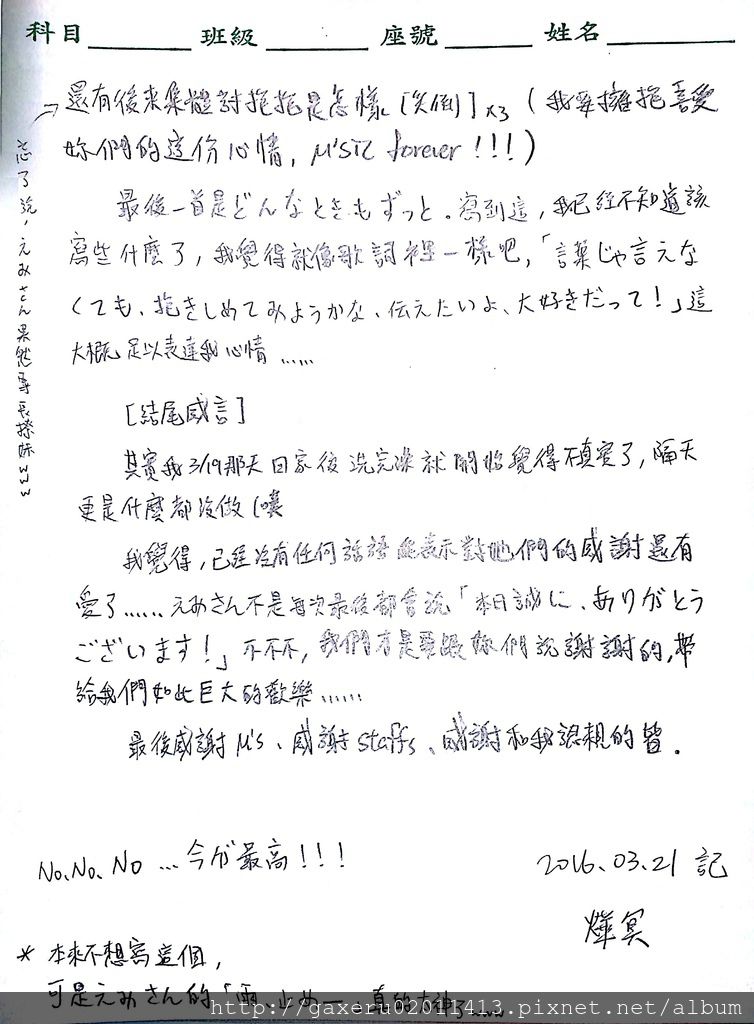 科目 班級 座號 姓名
還有後來集體討抱抱是怎樣 [笑倒] x3 (我要擁抱喜愛
妳們的這份心情, μ'sic forever!!!)
忘了說,えみさん果然專長撩妹www
最後一首是どんなときもずっと。寫到這,我已經不知道該
寫些什麼了,我覺得就像歌詞裡一樣吧,「言葉じゃ言えな
くても、抱きしめてみようかな、伝えたいよ、大好きだって!」這
大概足以表達我心情……
[結尾感言]
其實我3/19那天回家後洗完澡就開始覺得不真實了,隔天
更是什麼都沒做(噗
我覺得,已經沒有任何話語能表示對她們的感謝還有
愛了……えみさん不是每次最後都會說「本日誠に、ありがとう
ございます!」不不不,我們才是要跟妳們說謝謝的,帶
給我們如此巨大的歡樂……
最後感謝μ's、感謝staffs、感謝和我認親的皆.
No,No,No …今が最高!!!
2016.03.21 記
燁冥
* 本來不想寫這個,
可是えみさん的「雨、止めー」真的太神了……
http://gaxeru02043413.pixnet.net/album